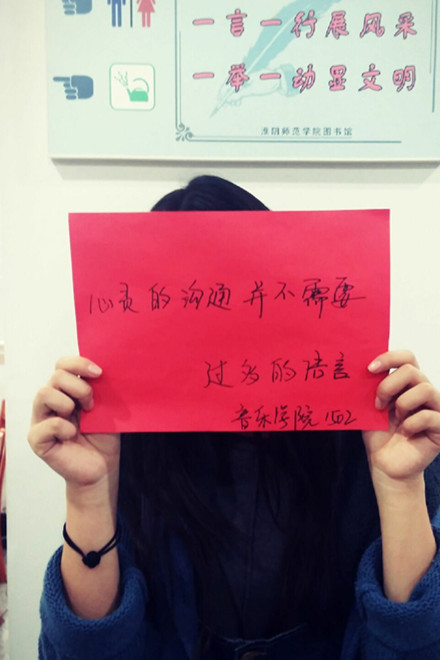 一言一行展风采
一举一动显文明
淮阴师范学院图书馆
心灵的沟通并不需要
过多的语言
音乐学院1502